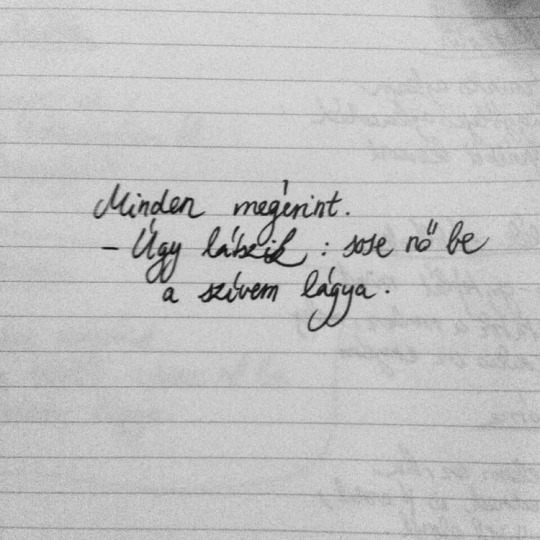 Minden megérint.
- Úgy látszik : sose nő be
a szívem lágya.